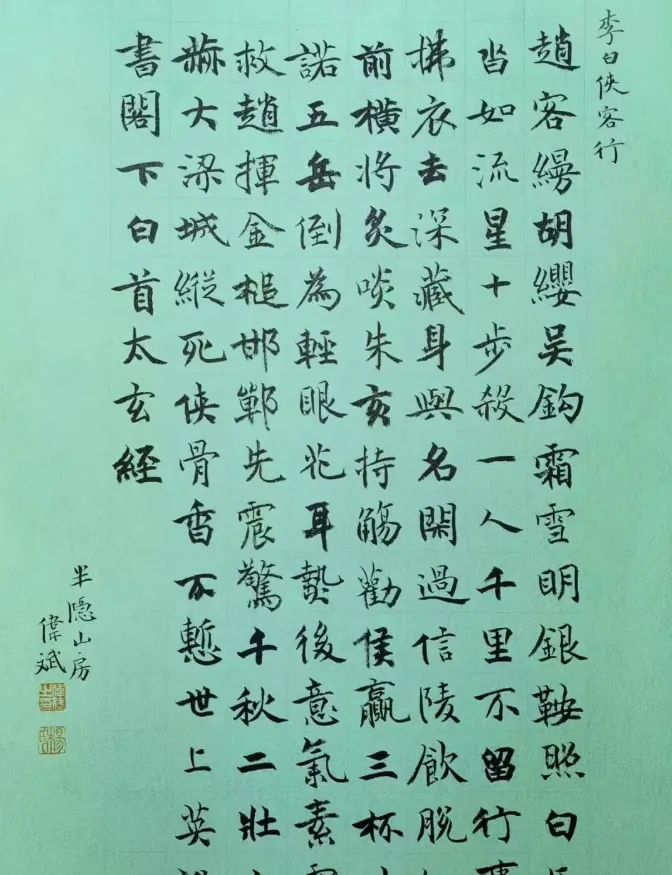 李白俠客行
趙客縵胡纓吳鈎霜雪明銀鞍照白
沓如流星十步殺一人千里不留行
拂衣去深藏身與名閑過信陵飲脫
前橫將炙啖朱亥持觴勸侯嬴三杯
諾五岳倒為輕眼花耳熱後意氣素
救趙揮金槌邯鄲先震驚千秋二壯
赫大梁城縱死俠骨香不慙世上英
書閣下白首太玄經
半隐山房
偉斌